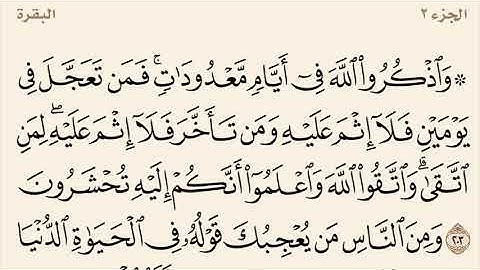 الجزء ٢ البقرة
۞ وَٱذْكُرُوا۟ ٱللَّهَ فِىٓ أَيَّامٍ مَّعْدُودَٰتٍ ۚ فَمَن تَعَجَّلَ فِى
يَوْمَيْنِ فَلَآ إِثْمَ عَلَيْهِ وَمَن تَأَخَّرَ فَلَآ إِثْمَ عَلَيْهِ ۖ لِمَنِ
ٱتَّقَىٰ ۗ وَٱتَّقُوا۟ ٱللَّهَ وَٱعْلَمُوٓا۟ أَنَّكُمْ إِلَيْهِ تُحْشَرُونَ
٢٠٣ وَمِنَ ٱلنَّاسِ مَن يُعْجِبُكَ قَوْلُهُۥ فِى ٱلْحَيَوٰةِ ٱلدُّنْيَا